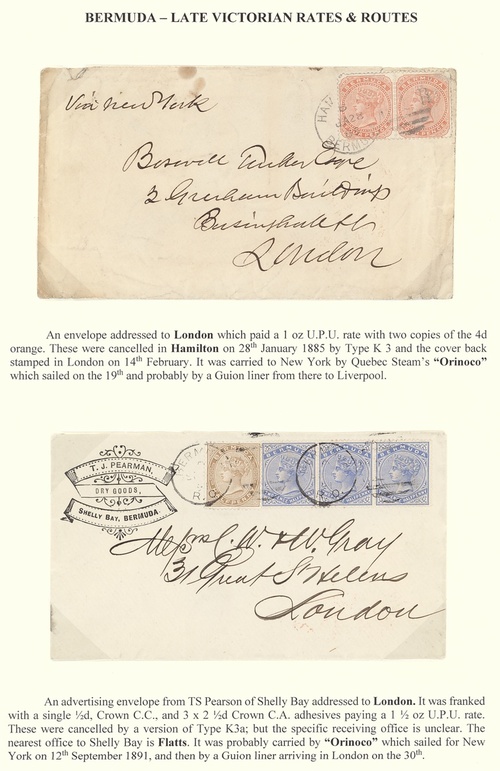 BERMUDA – LATE VICTORIAN RATES & ROUTES
Via New York
HAM
BERMU
Boswell Tudor Cope
2 Gresham Buildings
Basinghall St
London
An envelope addressed to London which paid a 1 oz U.P.U. rate with two copies of the 4d
orange. These were cancelled in Hamilton on 28th January 1885 by Type K 3 and the cover back
stamped in London on 14th February. It was carried to New York by Quebec Steam's "Orinoco"
which sailed on the 19th and probably by a Guion liner from there to Liverpool.
T. J. PEARMAN,
DRY GOODS,
SHELLY BAY, BERMUDA.
Messrs C. W. & W. Gray
31 Great St Helens
London
An advertising envelope from TS Pearson of Shelly Bay addressed to London. It was franked
with a single ½d, Crown C.C., and 3 x 2 ½d Crown C.A. adhesives paying a 1 ½ oz U.P.U. rate.
These were cancelled by a version of Type K3a; but the specific receiving office is unclear. The
nearest office to Shelly Bay is Flatts. It was probably carried by "Orinoco" which sailed for New
York on 12th September 1891, and then by a Guion liner arriving in London on the 30th.